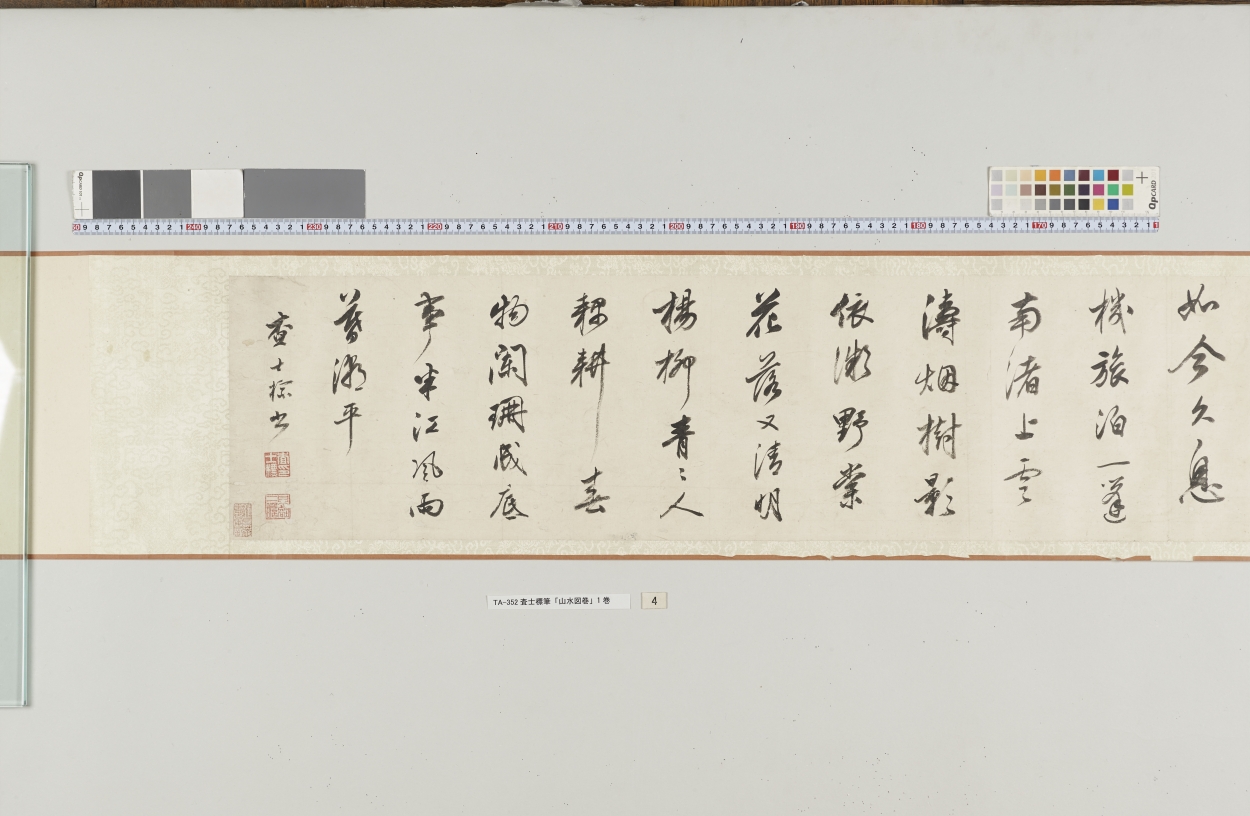 如今久息
機旅泊一篷
南渚上雲
濤烟樹影
依微野棠
花落又清明
楊柳青〻人
耦耕春
物闌珊成底
事半江風雨
暮潮平
查士標書
TA-352 査士標筆「山水図巻」1巻
4
QPCARD